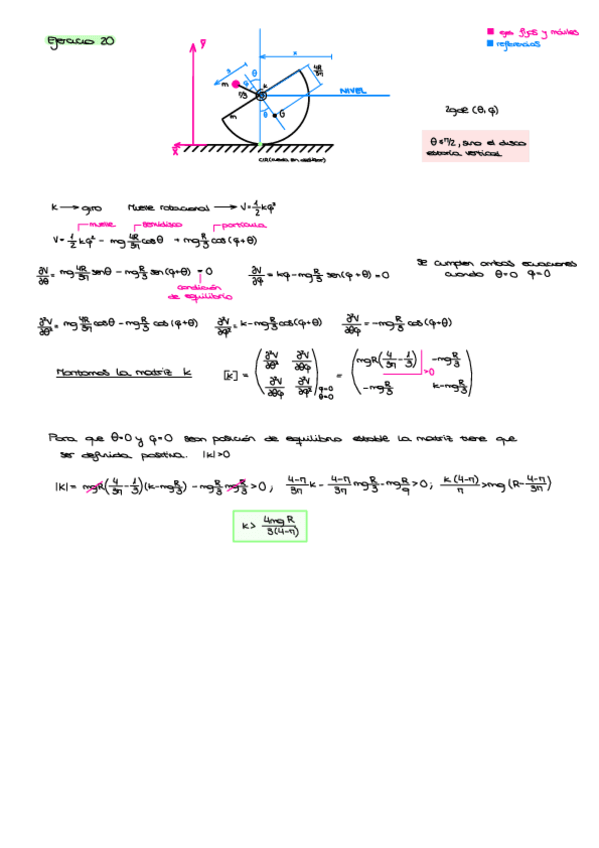 Ejercicio 20
ejes fijos y móviles
referencias
Y
X
x
m
θ
R/3
4R/3π
G
m
NIVEL
2gdl (θ, φ)
θ≠π/2, sino el disco
estaría vertical
K → giro Muelle rotacional → V=1/2 kφ²
muelle semidisco partícula
V= 1/2 kφ² - mg 4R/3π cosθ + mg R/3 cos(φ+θ)
∂V/∂θ = mg 4R/3π senθ - mg R/3 sen(φ+θ) = 0 ∂V/∂φ = kφ - mg R/3 sen(φ+θ) = 0
condición
de equilibrio
se cumplen ambas ecuaciones
cuando θ=0 φ=0
∂²V/∂θ² = mg 4R/3π cosθ - mg R/3 cos(φ+θ) ∂²V/∂φ² = k - mg R/3 cos(φ+θ) ∂²V/∂θφ = -mg R/3 cos(φ+θ)
Montamos la matriz k [K] = (∂²V/∂θ² ∂²V/∂θφ ∂²V/∂θφ ∂²V/∂φ²) φ=0 θ=0 = (mgR(4/3π - 1/3) -mg R/3 -mg R/3 k-mg R/3) >0
Para que θ=0 y φ=0 sean posición de equilibrio estable la matriz tiene que
ser definida positiva. |k|>0
|K| = mgR(4/3π - 1/3)(k-mg R/3) - mg R/3 mg R/3 > 0 ; 4-π/3π k - 4-π/3π mg R/3 - mg R/9 > 0 ; k(4-π)/π > mg (R- 4-π/3π)
k > 4mgR/3(4-π)